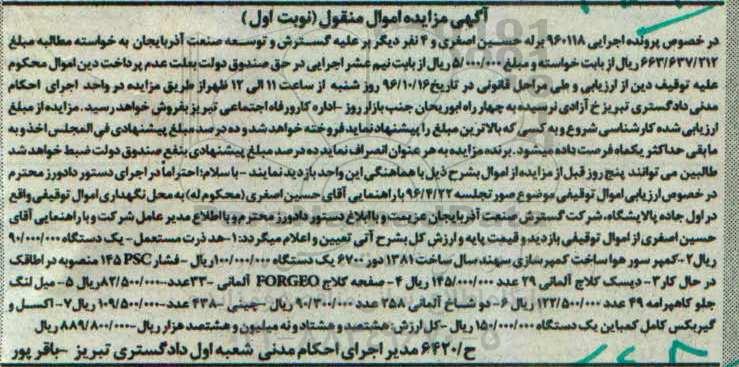 آگهی مزایده اموال منقول (نوبت اول)
در خصوص پرونده اجرایی ۹۶۰۱۱۸ برله حسین اصغری و ۴ نفر دیگر بر علیه گسترش و توسعه صنعت آذربایجان به خواسته مطالبه مبلغ
۶۶۳/۶۳۷/۲۱۲ ریال از بابت خواسته و مبلغ ۵/۰۰۰/۰۰۰ ریال از بابت نیم عشر اجرایی در حق صندوق دولت بعلت عدم پرداخت دین اموال محکوم
علیه توقیف دین از ارزیابی و طی مراحل قانونی در تاریخ ۹۶/۱۰/۱۶ روز شنبه از ساعت ۱۱ الی ۱۲ ظهر از طریق مزایده در واحد اجرای احکام
مدنی دادگستری تبریز خ آزادی نرسیده به چهارراه ابوریحان جنب بازار روز -اداره کار و رفاه اجتماعی تبریز بفروش خواهد رسید. مزایده از مبلغ
ارزیابی شده کارشناسی شروع و به کسی که بالاترین مبلغ را پیشنهاد نماید فروخته خواهد شد و ده درصد مبلغ پیشنهادی فی المجلس اخذ و به
مابقی حداکثر یکماه فرصت داده میشود. برنده مزایده به هر عنوان انصراف نماید ده درصد مبلغ پیشنهادی بنفع صندوق دولت ضبط خواهد شد
طالبین می توانند پنج روز قبل از مزایده از اموال بشرح ذیل با هماهنگی این واحد بازدید نمایند -با سلام: احتراماً در اجرای دستور دادورز محترم
در خصوص ارزیابی اموال توقیفی موضوع صورتجلسه ۹۶/۴/۲۲ با راهنمایی آقای حسین اصغری (محکوم له) به محل نگهداری اموال توقیفی واقع
در اول جاده پالایشگاه، شرکت گسترش صنعت آذربایجان عزیمت و با ابلاغ دستور دادورز محترم و با اطلاع مدیر عامل شرکت و با راهنمایی آقای
حسین اصغری از اموال توقیفی بازدید و قیمت پایه و ارزش کل بشرح آتی تعیین و اعلام میگردد: ۱-هد ذرت مستعمل- یک دستگاه ۹۰/۰۰۰/۰۰۰
ریال ۲-کمپرسور هوا ساخت کمپرسازی سهند سال ساخت ۱۳۸۱ دور ۶۷۰۰ یک دستگاه ۱۰۰/۰۰۰/۰۰۰ ریال -فشار PSC ۱۴۵ منصوبه در اطاقک
در حال کار ۳- دیسک کلاچ آلمانی ۲۹ عدد ۱۴۵/۰۰۰/۰۰۰ ریال ۴- صفحه کلاچ FORGEO آلمانی -۳۳ عدد-۸۲/۵۰۰/۰۰۰ ریال ۵- میل لنگ
جلو کاهپرامه ۴۹ عدد ۱۲۲/۵۰۰/۰۰۰ ریال ۶- دو شاخ آلمانی ۲۵۸ عدد ۹۰/۳۰۰/۰۰۰ ریال -چینی -۴۳۸ عدد-۱۰۹/۵۰۰/۰۰۰ ریال ۷- اکسل و
گیربکس کامل کمباین یک دستگاه ۱۵۰/۰۰۰/۰۰۰ ریال -کل ارزش: هشتصد و هشتاد و نه میلیون و هشتصد هزار ریال -۸۸۹/۸۰۰/۰۰۰ ریال
ح/۶۴۲۰ مدیر اجرای احکام مدنی شعبه اول دادگستری تبریز -باقر پور